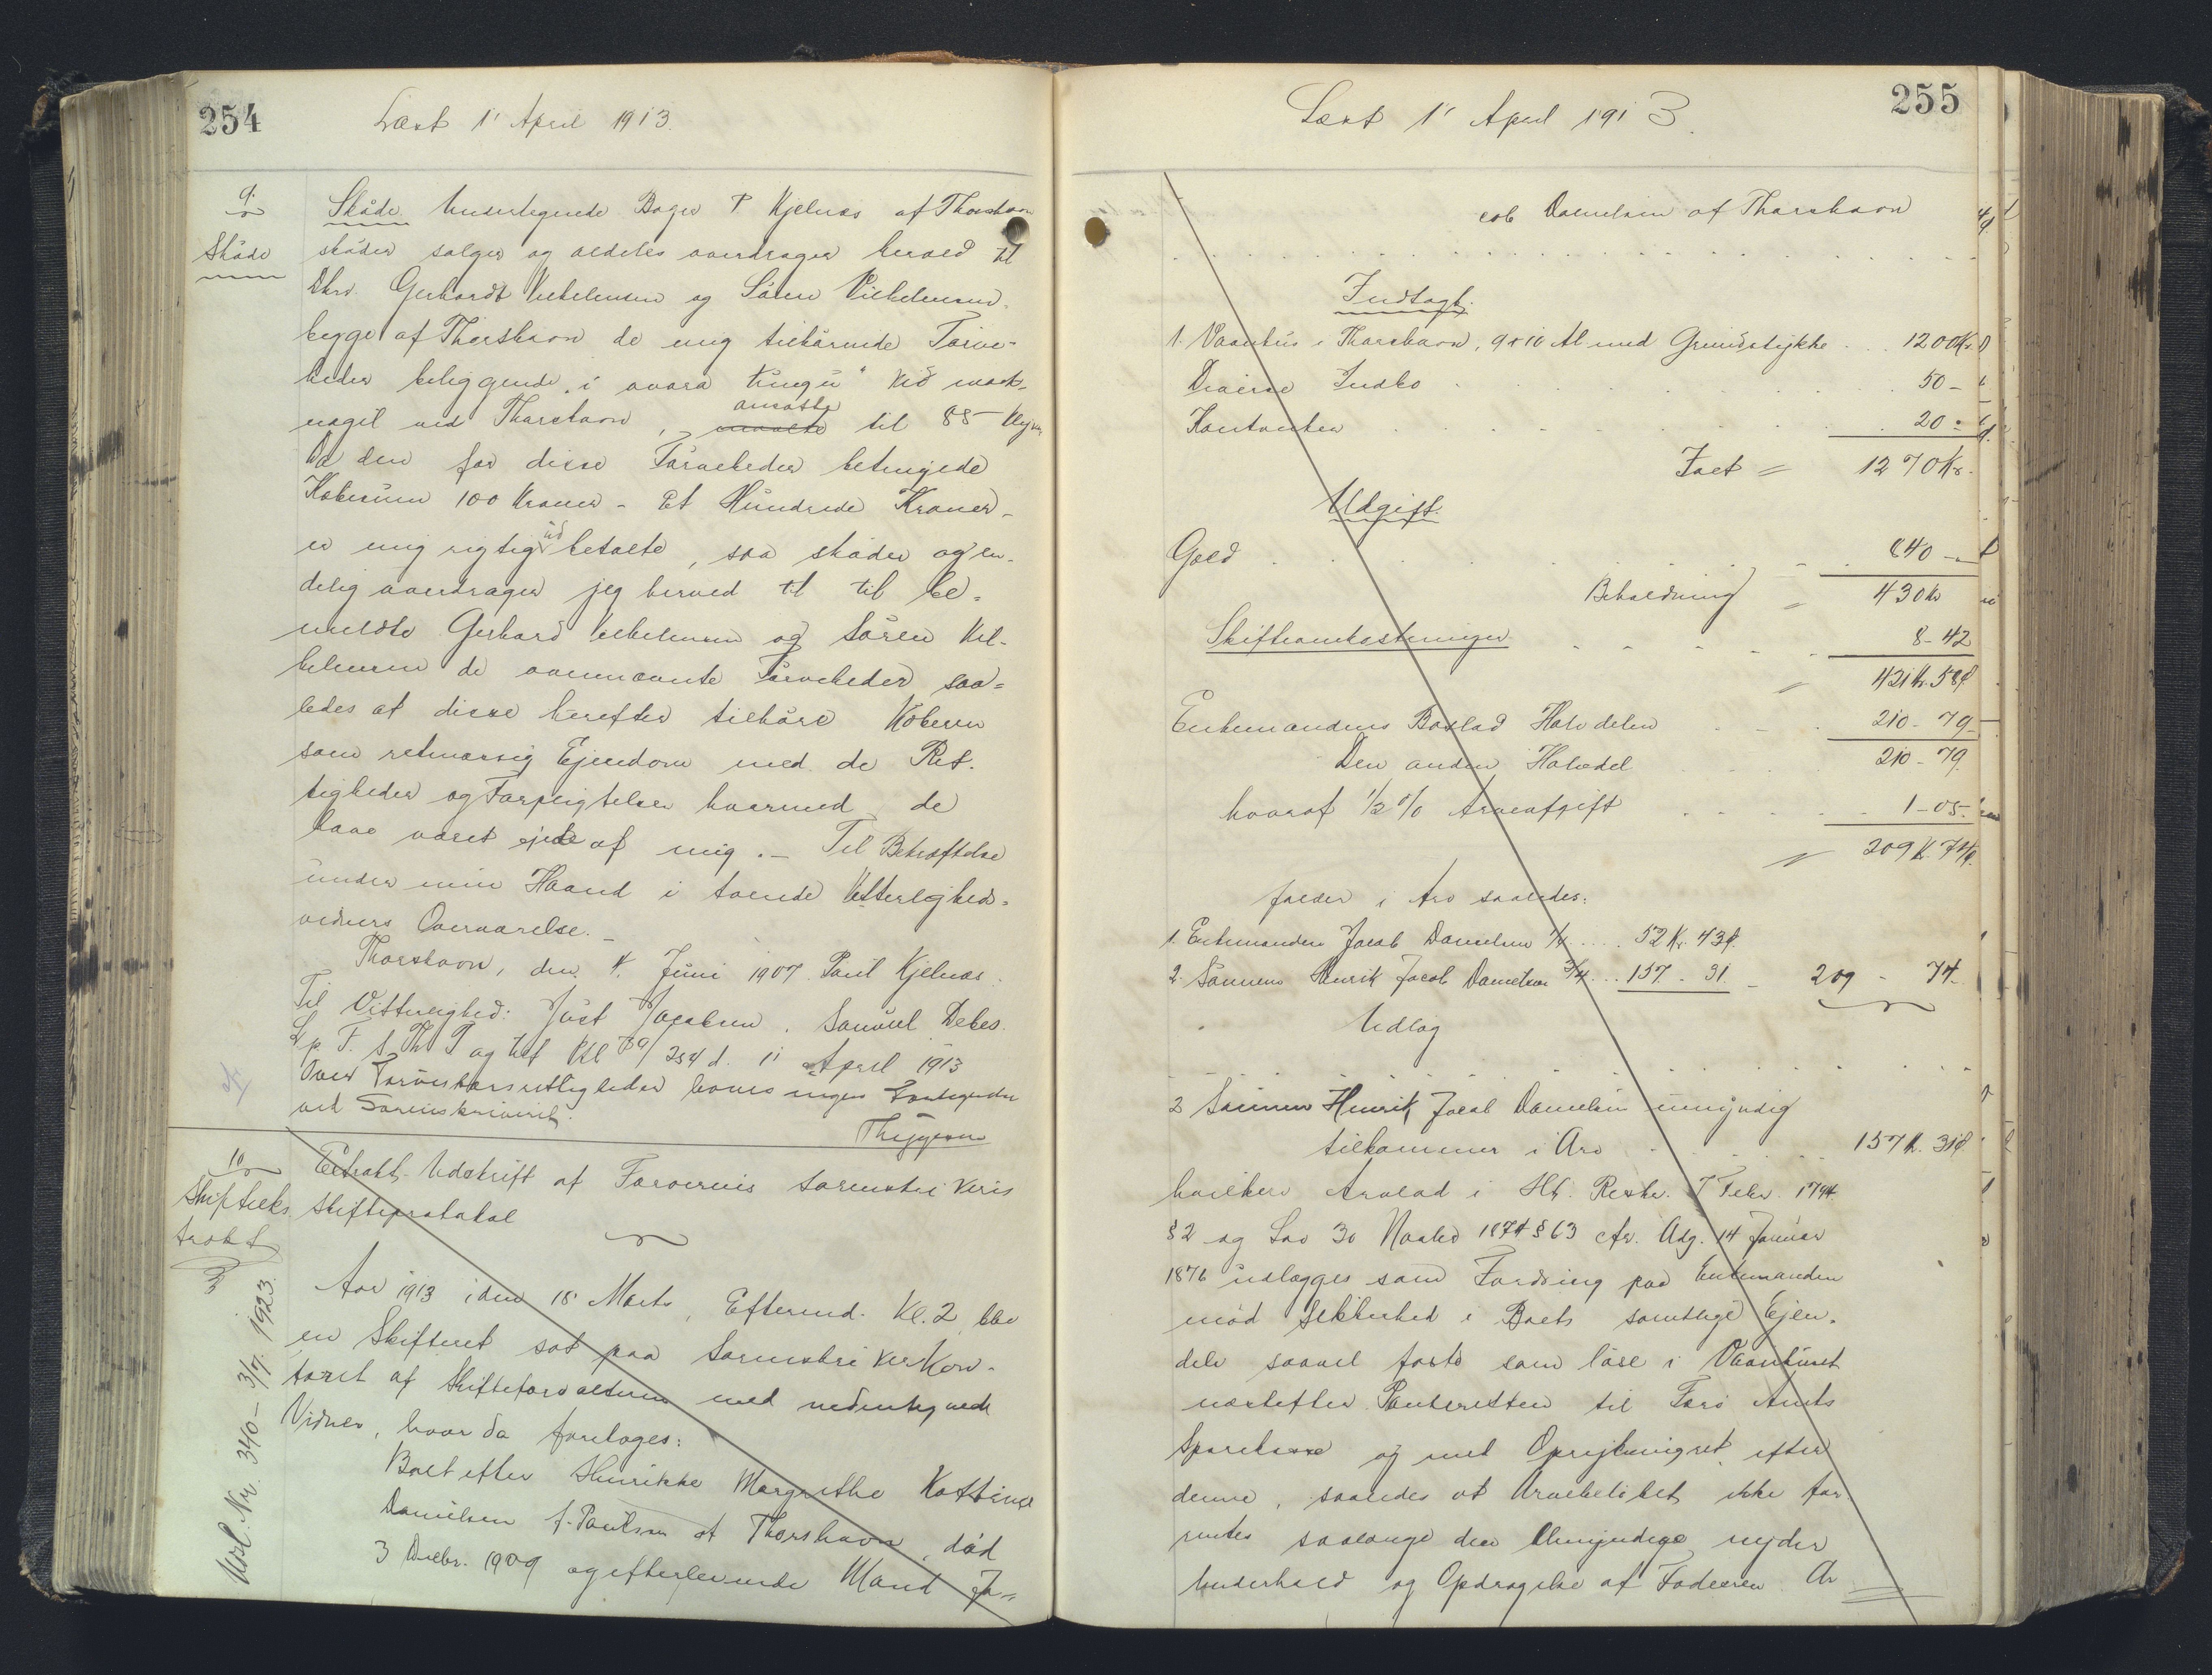 254
Læst 1' April 1913.
9.
Skøde
Skøde. Undertegnede Bager P Kjelnæs af Thorshavn
skøder sælger og aldeles overdrager herved til
Hrr. Gerhardt Vilhelmsen og Søren Vilhelmsen
begge af Thorshavn de mig tilhørende Tørve-
heder beliggende i
nagil ved Thorshavn, ansatte til 85
Da den for disse Tørveheder betingede
Købesum 100 Kroner - Et Hundrede Kroner -
er mig rigtig udbetalte, saa skøder og en-
delig overdrager jeg herved til til be-
meldte Gerhard Vilhelmsen og Søren Vil-
helmsen de ovennævnte Tørveheder saa-
ledes at disse herefter tilhøre Køberen
som retmæssig Ejendom med de Ret-
tigheder og Forpligtelser hvormed de
have været ejede af mig. - Til Bekræftelse
under min Haand i tvende Vitterligheds-
vidners Overværelse. -
Thorshavn, den 4. Juni 1907. Poul Kjelnæs.
Til Vitterlighed: Just Jacobsen. Samuel Debes.
April 1913
Over Tørveskærsrettigheder haves ingen
ved Sorenskriveriet.
10
Skifteeks
trakt
Udsl. Nr. 340 - 3/7. 1923.
Extrakt-Udskrift af Færøernes Sorenskriveris
Skifteprotokol
Aar 1913 iden 18 Marts, Eftermd. Kl. 2 blev
en Skifteret sat paa Sorenskriverkon-
toret af Skifteforvalteren med undertegnede
Vidner, hvor da foretoges:
Boet efter Henrikke Margrethe Kattrine
Danielsen f. Poulsen af Thorshavn, død
3 Decbr. 1909 og efterlevende Mand Ja-
255
Læst 1' April 1913.
cob Danielsen af Thorshavn
Indtægt.
1. Vaanhus i Thorshavn, 9 x 10 Al. med Grundstykke . . . 1200 Kr
Diverse Indbo . . . 50 -
Kontanter . . . 20 -
Ialt = 1270 Kr.
Udgift.
Gæld . . . 840 -
Beholdning = 430 Kr
Skifteomkostninger . . . 8 - 42
= 421 Kr. 58 Ø
Enkemandens Boslod Halvdelen . . . 210 - 79 -
Den anden Halvdel . . . 210 - 79.
hvoraf 1/2 % Arveafgift . . . 1 - 05.
= 209 K. 74 Ø.
falder i Arv saaledes:
1. Enkemanden Jacob Danielsen 1/4 . . . 52 Kr. 43 Ø.
2. Sønnen Henrik Jacob Danielsen 3/4 . . . 157 - 31. - 209 - 74.
Udlæg
2 Sønnen Henrik Jacob Danielsen umyndig
tilkommer i Arv . . . 157 K. 31 Ø
hvilken Arvelod i Hh. Reskr. 7 Febr. 1794
§ 2 og Lov 30 Novbr 1874 § 63 cfr. Adg. 14 Januar
1876 udlægges som Fordring paa Enkemanden
mod Sikkerhed i Boets samtlige Ejen-
dele saavel faste som løse i Vaanhuset
næstefter Panteretten til Færø Amts
Sparekasse og med Oprykningsret efter
denne, saaledes at Arvebeløbet ikke for-
rentes saalænge den Umyndige nyder
Underhold og Opdragelse af Faderen. Ar